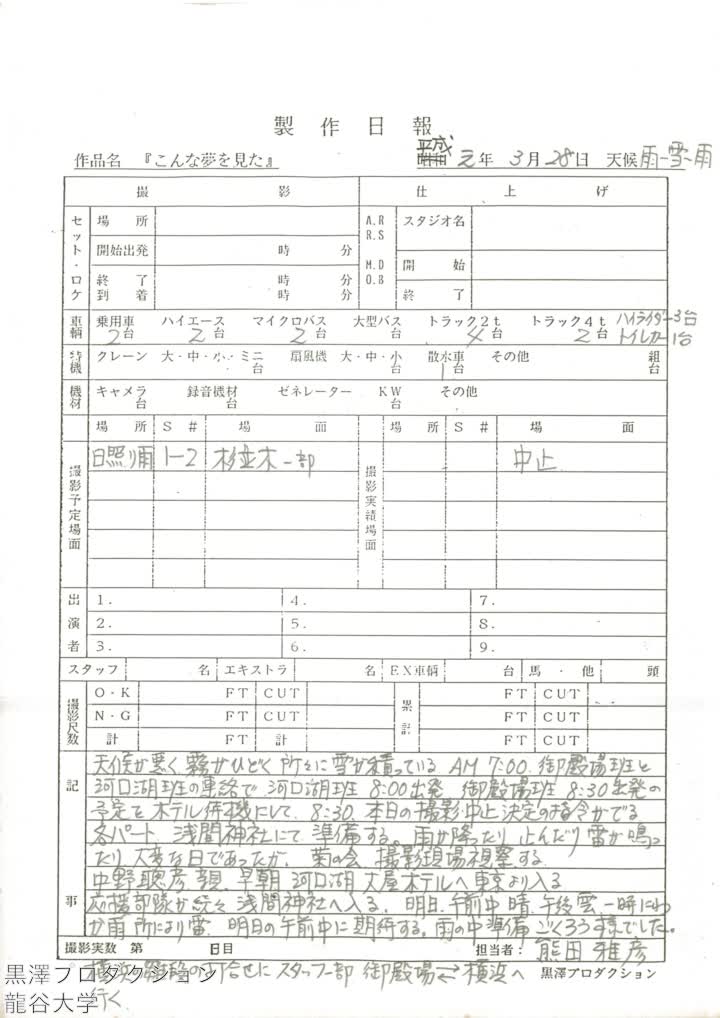 製作日報
作品名 『こんな夢を見た』 平成 元年 3月28日 天候 雨-雪-雨
撮影 仕上げ
セット・ロケ 場所 A.R R.S スタジオ名
開始出発 時 分
終了 時 分 M.D O.B 開始
到着 時 分 終了
車輌 乗用車 2台 ハイエース 2台 マイクロバス 2台 大型バス 台 トラック2t 4台 トラック4t 2台 ハイライダー3台
トイレカー1台
特機 クレーン 大・中・小・ミニ 台 扇風機 大・中・小 台 散水車 1台 その他 組 台
機材 キャメラ 台 録音機材 台 ゼネレーター KW 台 その他
場所 S# 場面 場所 S# 場面
撮影予定場面 日照り雨 1-2 杉並木一部 撮影実績場面 中止
出演者 1. 4. 7.
2. 5. 8.
3. 6. 9.
スタッフ 名 エキストラ 名 EX車輌 台 馬・他 頭
撮影尺数 O・K FT CUT 累計 FT CUT
N・G FT CUT FT CUT
計 FT 計 FT CUT
記事 天候が悪く霧がひどく所々に雪が積っている AM 7:00 御殿場班と
河口湖班の連絡で 河口湖班 8:00出発 御殿場班 8:30出発の
予定をホテル待機にして、8:30 本日の撮影中止決定の指令がでる
各パート 浅間神社にて 準備する。雨が降たり 止んだり 雷が鳴っ
たり 大変な日であったが、菊の会 撮影現場視察する
中野聰彦 親、早朝 河口湖 大屋ホテルへ東京より入る
応援部隊が続々 浅間神社へ入る、明日、午前中 晴、午後 雲、一時にわ
か雨 所により雷、明日の午前中に期待する。雨の中 準備ごくろう様でした。
撮影実数 第 日目 担当者: 熊田雅彦
の打合せにスタッフ一部 御殿場⇄横浜へ 黒澤プロダクション
行く
黒澤プロダクション
龍谷大学